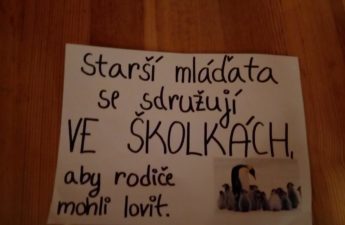 Starší mláďata
se sdružují
VE ŠKOLKÁCH,
aby rodiče
mohli lovit.